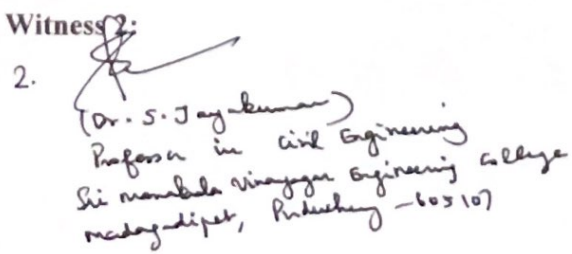 Witness 2:
2.
(Dr. S. Jayakumar)
Professor in Civil Engineering
Sri Manakula Vinayagar Engineering College
Madagadipet, Puducherry - 605107